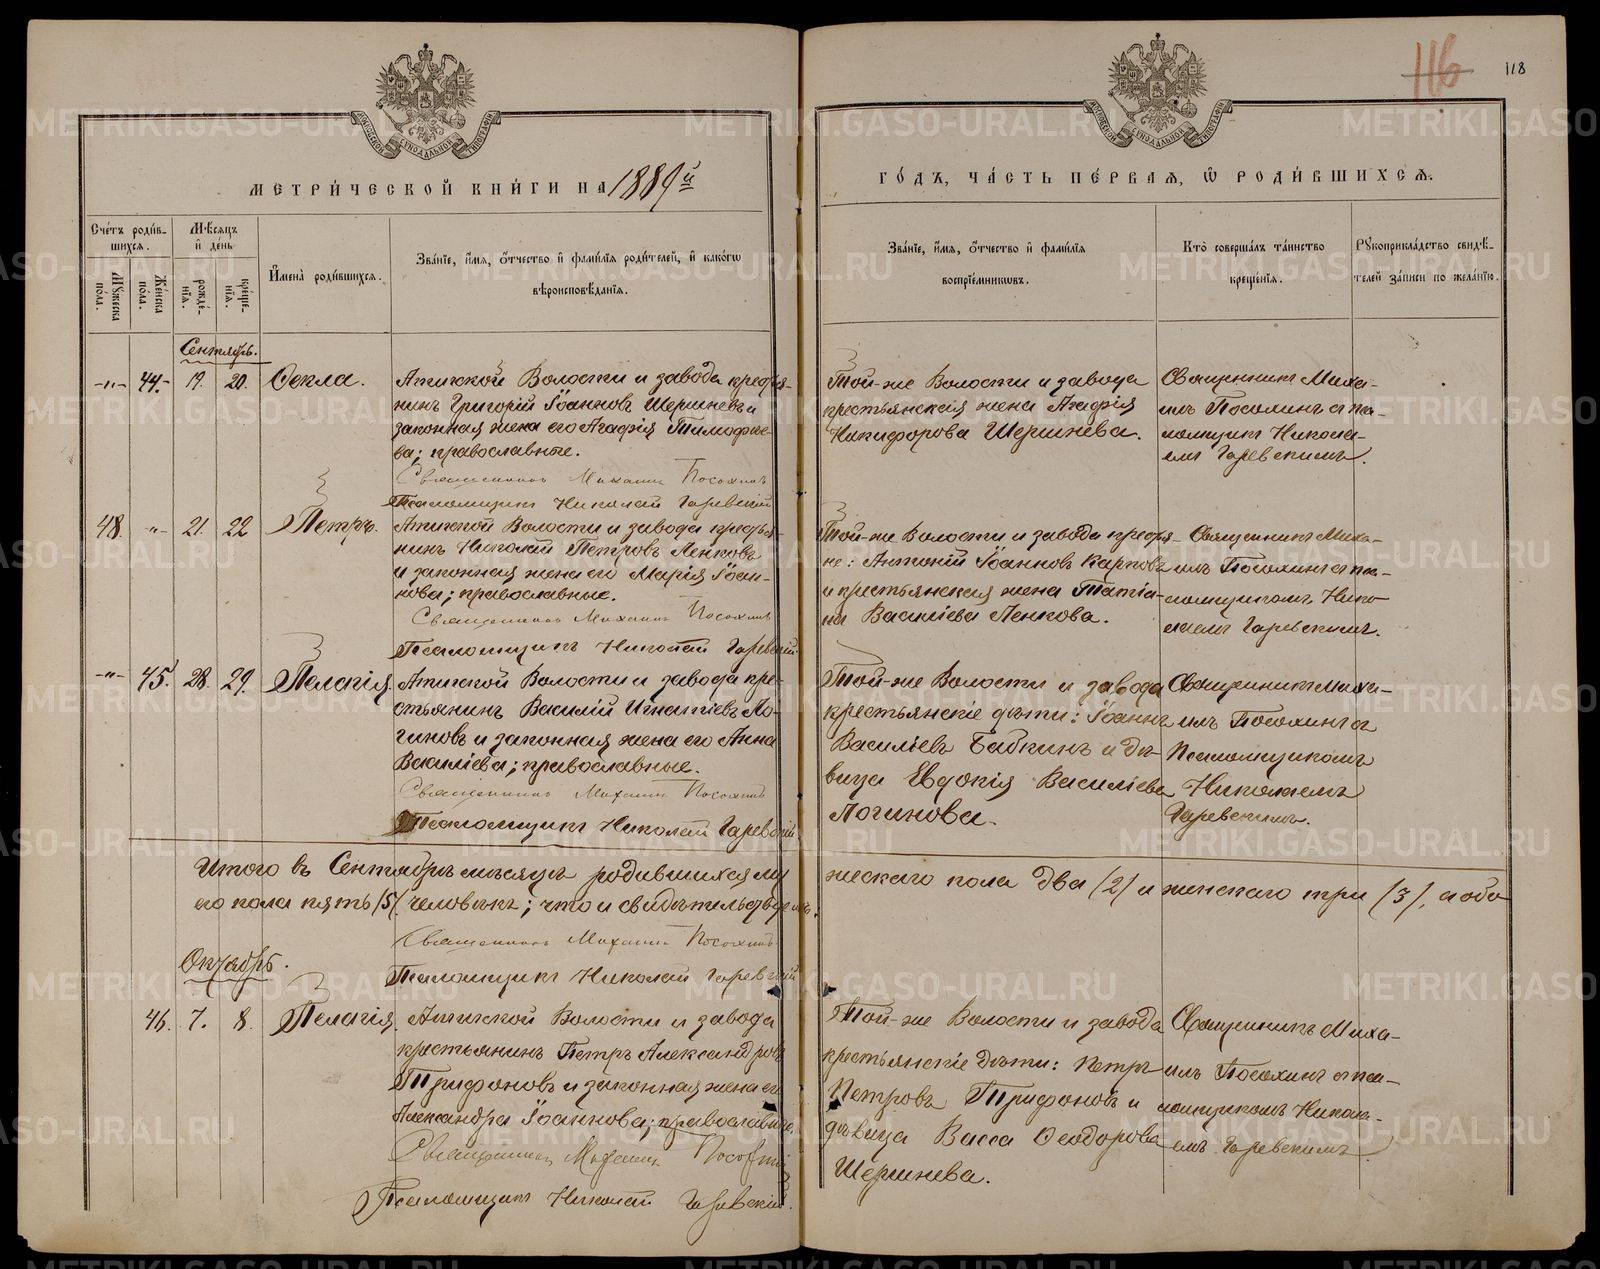 116
118
МЕТРИ́ЧЕСКОЙ КНИ́ГИ НА 1889й
ГО́ДЪ, ЧА́СТЬ ПЕ́РВАЯ, Ѽ РОДИ́ВШИХСѦ.
Сче́тъ роди́в-
шихся.
Мѣ́сяцъ
и҆ де́нь
Му́жеска
по́ла.
Же́нска
по́ла.
рожде́-
нїѧ.
креще́-
нїѧ.
И҆мена̀ роди́вшихся.
Зва́нїе, и҆́мя, ѻ҆́тчество и҆ фами́лїѧ роди́телей, и҆ како́гѡ
вѣроисповѣ́данїѧ.
Зва́нїе, и҆́мя, ѻ҆́тчество и҆ фами́лїѧ
воспрїе́мникѡвъ.
Кто̀ соверша́лъ та́инство
креще́нїѧ.
Рꙋкоприкла́дство свидѣ́-
телей за́писи по жела́нїю.
Сентябрь.
-„-
44.
19.
20.
Ѳекла.
Атигской Волости и завода кресть-
янинъ Григорій Іоанновъ Шершневъ и
законная жена его Агафія Тимофее-
ва; православные.
Священникъ Михаилъ Посохинъ
Псаломщикъ Николай Гаревскій
Той-же Волости и завода
крестьянская жена Агафія
Никифорова Шершнева.
Священникъ Миха-
илъ Посохинъ съ пса-
ломщик Никола-
емъ Гаревскимъ.
48.
„-
21.
22
Петръ.
Атигской Волости и завода крестья-
нинъ Николай Петровъ Пенковъ
и законная жена его Марія Іоан-
нова; православные.
Священникъ Михаилъ Посохинъ
Псаломщикъ Николай Гаревскій
Той-же Волости и завода крестья-
не: Антоній Іоанновъ Карповъ
и крестьянская жена Татіа-
на Василіева Пенкова.
Священникъ Миха-
илъ Посохинъ съ пса-
ломщикомъ Нико-
лаемъ Гаревскимъ.
-„-
45.
28.
29.
Пелагія.
Атигской Волости и завода кре-
стьянинъ Василій Игнатіевъ Ло-
гиновъ и законная жена его Анна
Василіева; православные.
Священникъ Михаилъ Посохинъ
Псаломщикъ Николай Гаревскій
Той-же Волости и завода
крестьянскіе дѣти: Іоаннъ
Василіевъ Бабкинъ и дѣ-
вица Евдокія Василіева
Логинова.
Священникъ Миха-
илъ Посохинъ съ
Псаломщикомъ
Николаемъ
Гаревскимъ.
Итого въ Сентябрѣ мѣсяцѣ родившихся му
жескаго пола два /2/ и женскаго три /3/, а обо
его пола пять /5/ человѣкъ; что и свидѣтельствуемъ:
Священникъ Михаилъ Посохинъ
Псаломщикъ Николай Гаревскій
Октябрь.
46.
7.
8.
Пелагія.
Атигской Волости и завода
крестьянинъ Петръ Александровъ
Трифоновъ и законная жена его
Александра Іоаннова; православные.
Священникъ Михаилъ Посохинъ
Псаломщикъ Николай Гаревскій
Той-же Волости и завода
крестьянскіе дѣти: Петръ
Петровъ Трифоновъ и
дѣвица Васса Ѳеодорова
Шершнева.
Священникъ Миха-
илъ Посохинъ съ пса-
ломщикомъ Никола-
емъ Гаревскимъ.